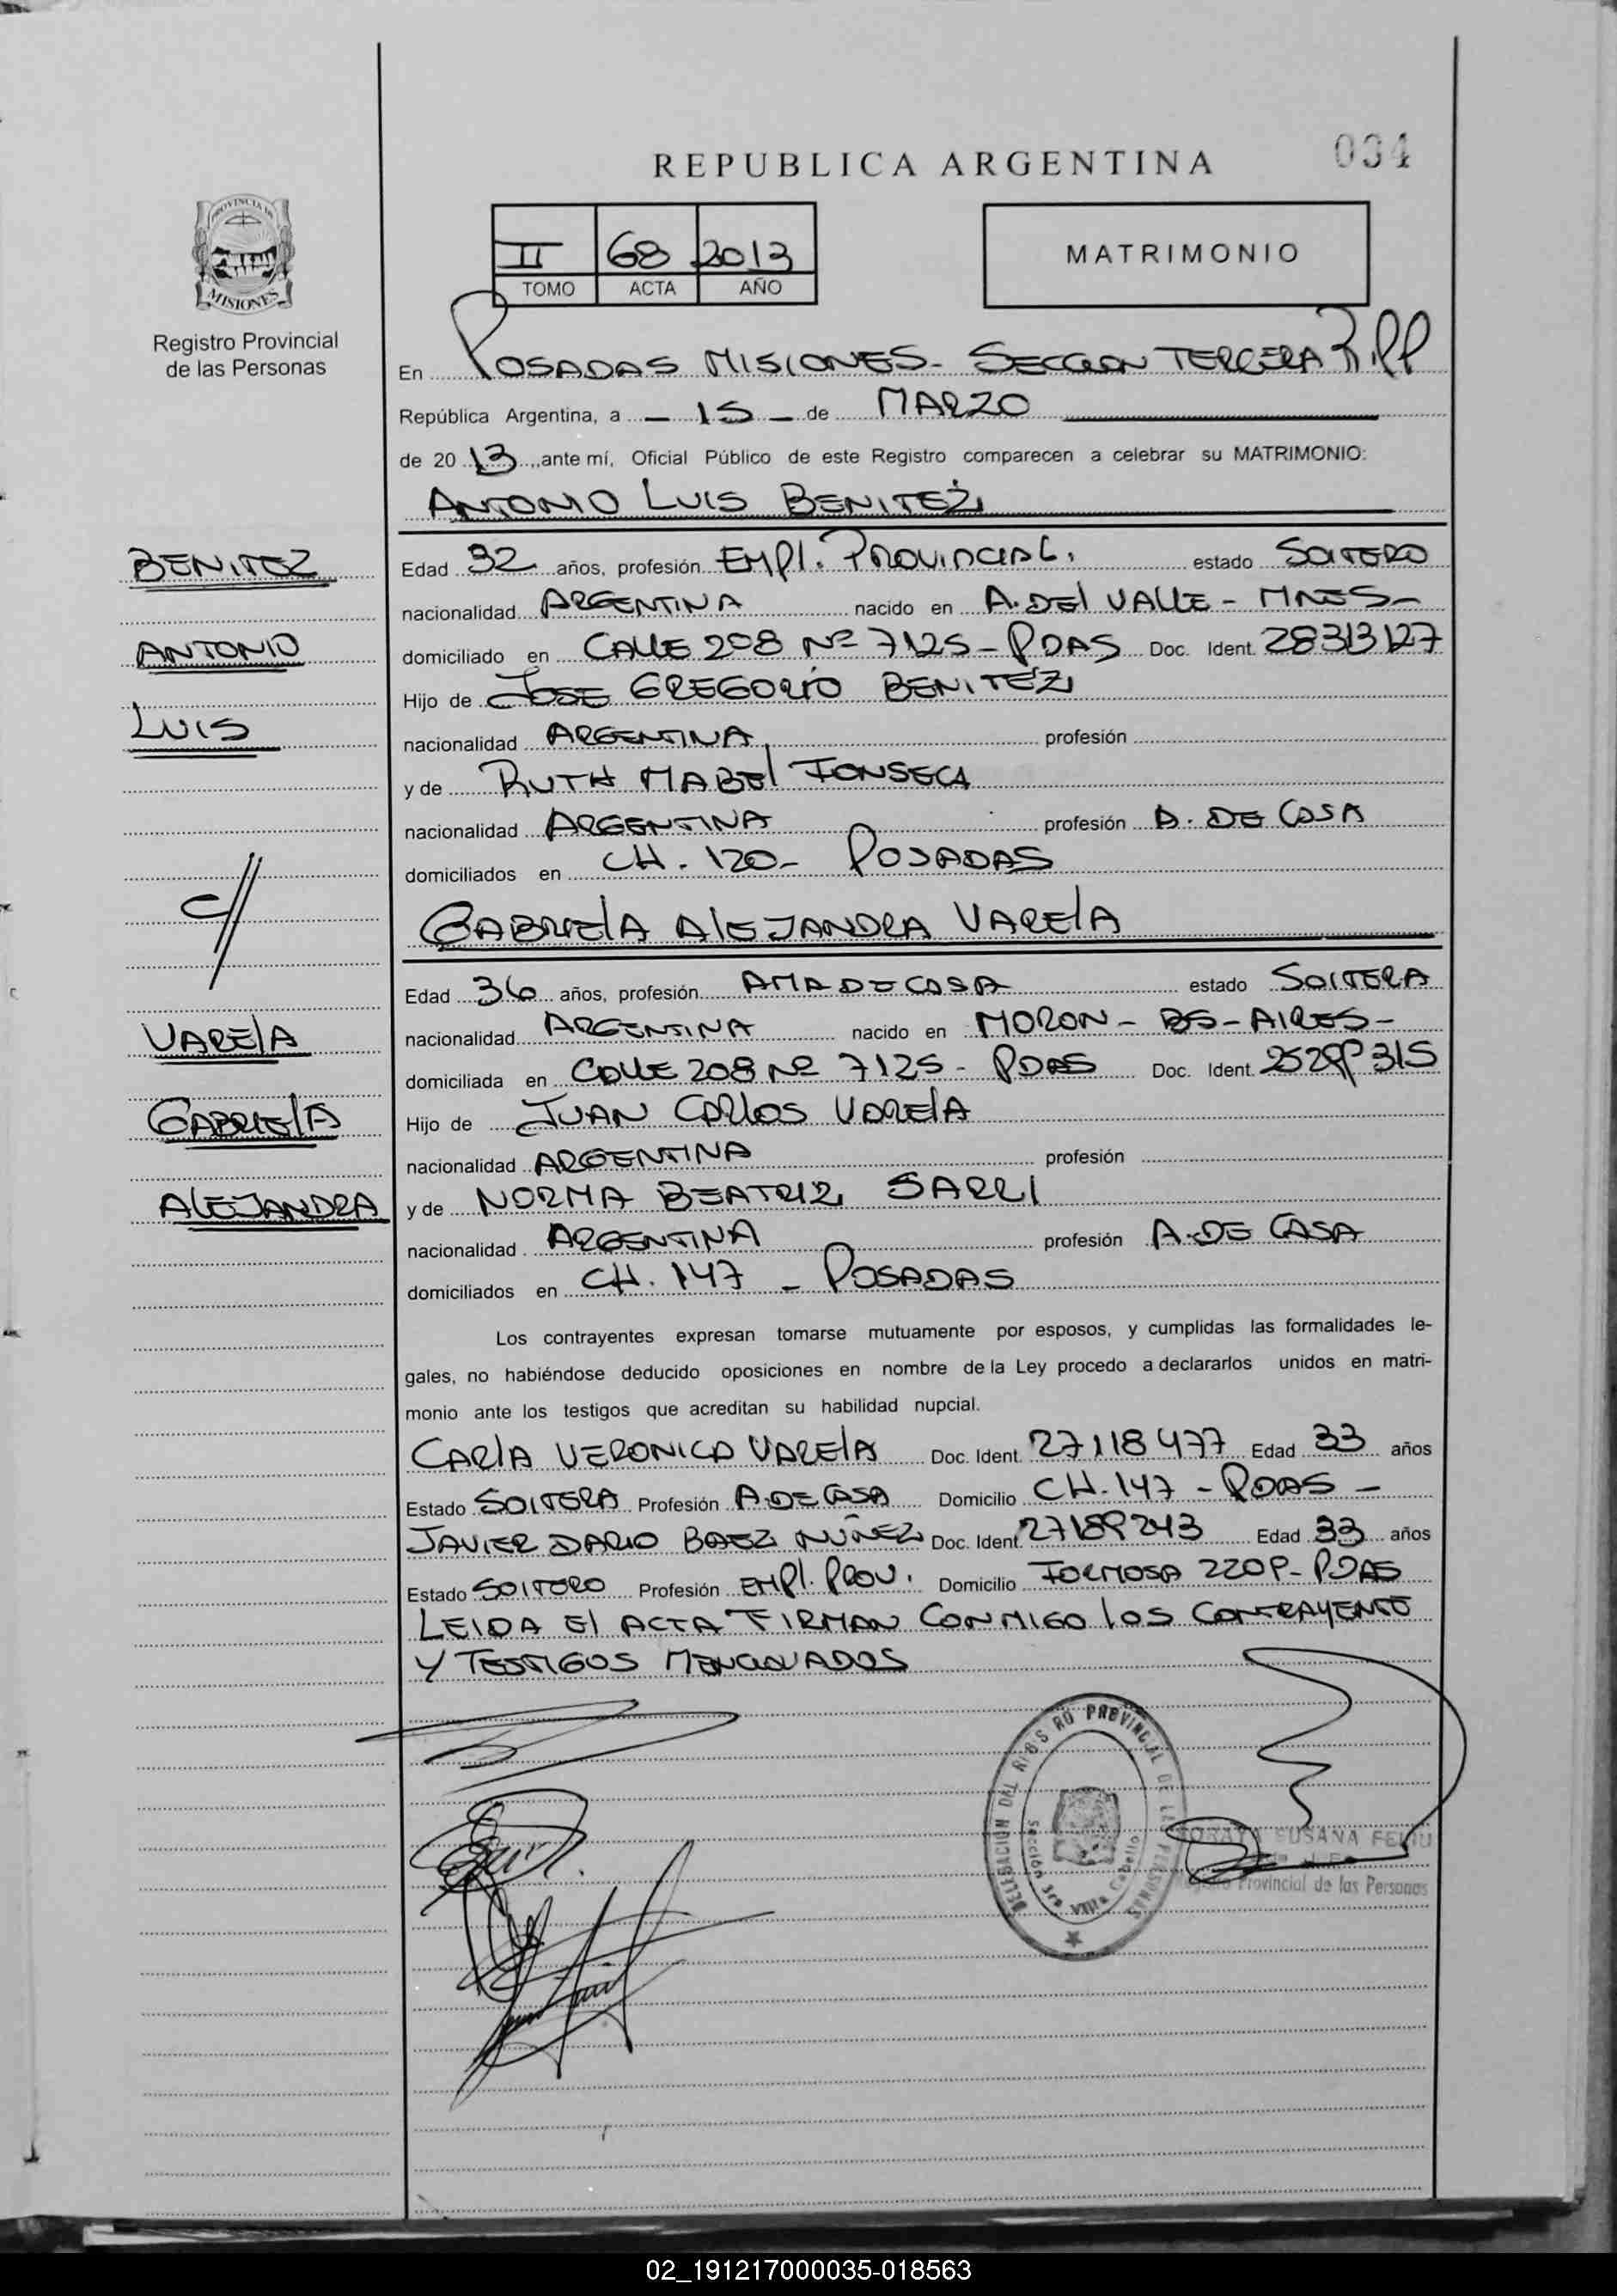 REPUBLICA ARGENTINA
034
PROVINCIA DE
MISIONES
Registro Provincial
de las Personas
II 68 2013
TOMO ACTA AÑO
MATRIMONIO
En POSADAS MISIONES- SECCION TERCERA R.P.P
República Argentina, a - 15 - de MARZO
de 2013, ante mí, Oficial Público de este Registro comparecen a celebrar su MATRIMONIO:
ANTONIO LUIS BENITEZ
BENITEZ
ANTONIO
LUIS
c//
VARELA
GABRIELA
ALEJANDRA
Edad 32 años, profesión EMPL. PROVINCIAL. estado SOLTERO
nacionalidad ARGENTINA nacido en A. DEL VALLE - MNES-
domiciliado en CALLE 208 Nº 7125 - PDAS Doc. Ident. 28313127
Hijo de JOSE GREGORIO BENITEZ
nacionalidad ARGENTINA profesión
y de RUTH MABEL FONSECA
nacionalidad ARGENTINA profesión A. DE CASA
domiciliados en CH. 120- POSADAS
GABRIELA ALEJANDRA VARELA
Edad 36 años, profesión AMA DE CASA estado SOLTERA
nacionalidad ARGENTINA nacido en MORON - BS - AIRES -
domiciliada en CALLE 208 Nº 7125 - PDAS Doc. Ident. 25299315
Hijo de JUAN CARLOS VARELA
nacionalidad ARGENTINA profesión
y de NORMA BEATRIZ SARRI
nacionalidad ARGENTINA profesión A. DE CASA
domiciliados en CH. 147 - POSADAS
Los contrayentes expresan tomarse mutuamente por esposos, y cumplidas las formalidades le-
gales, no habiéndose deducido oposiciones en nombre de la Ley procedo a declararlos unidos en matri-
monio ante los testigos que acreditan su habilidad nupcial.
CARLA VERONICA VARELA Doc. Ident. 27118477 Edad 33 años
Estado SOLTERA Profesión A. DE CASA Domicilio CH. 147 - PDAS -
JAVIER DARIO BAEZ NUÑEZ Doc. Ident. 27189243 Edad 33 años
Estado SOLTERO Profesión EMPL. PROV. Domicilio FORMOSA 2209 - PDAS
LEIDA EL ACTA FIRMAN CONMIGO LOS CONTRAYENTE
Y TESTIGOS MENCIONADOS
DELEGACION DEL REGISTRO PROVINCIAL DE LAS PERSONAS
Sección 3ra. Villa Cabello
SUSANA FELIU
Provincial de las Personas
02_191217000035-018563